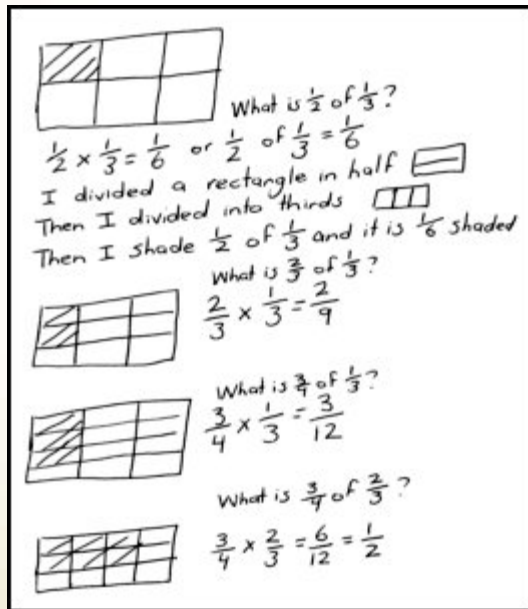 What is 1/2 of 1/3?
1/2 × 1/3 = 1/6 or 1/2 of 1/3 = 1/6
I divided a rectangle in half
Then I divided into thirds
Then I shade 1/2 of 1/3 and it is 1/6 shaded
What is 2/3 of 1/3?
2/3 × 1/3 = 2/9
What is 3/4 of 1/3?
3/4 × 1/3 = 3/12
What is 3/4 of 2/3?
3/4 × 2/3 = 6/12 = 1/2